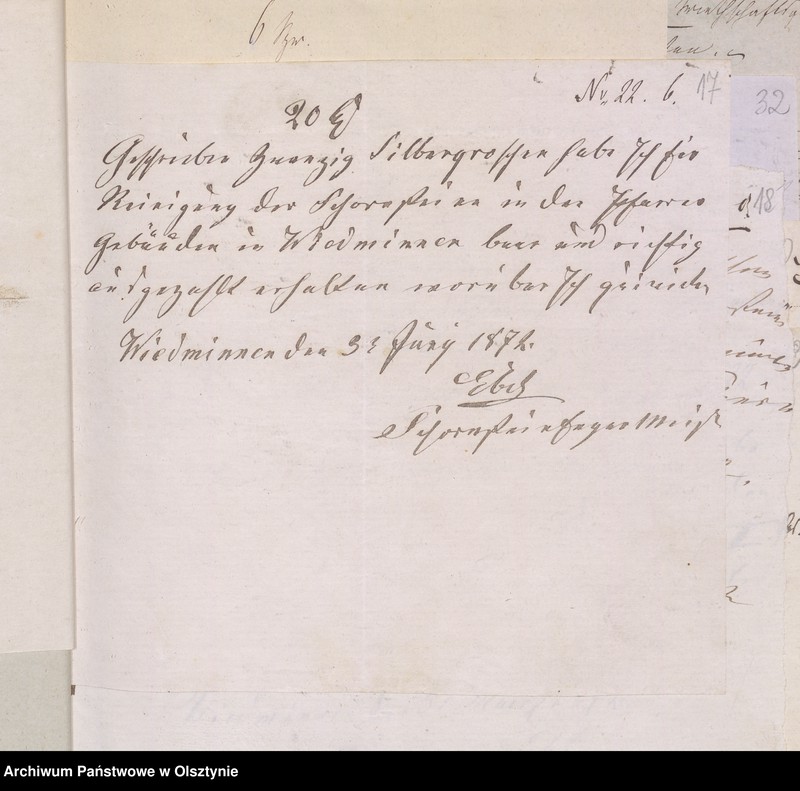 6 Sgr.
No 22. 6. 17
32
18
20 Sgr
Geschrieben Zwanzig Silbergroschen habe Ich für
Reinigung der Schornsteine in den Pfarre
Gebäuden in Wiedminnen baar und richtig
ausgezahlt erhalten worüber Ich quitire
Wiedminnen den Juny 1872.
Schornsteinfeger Meist
Archiwum Państwowe w Olsztynie